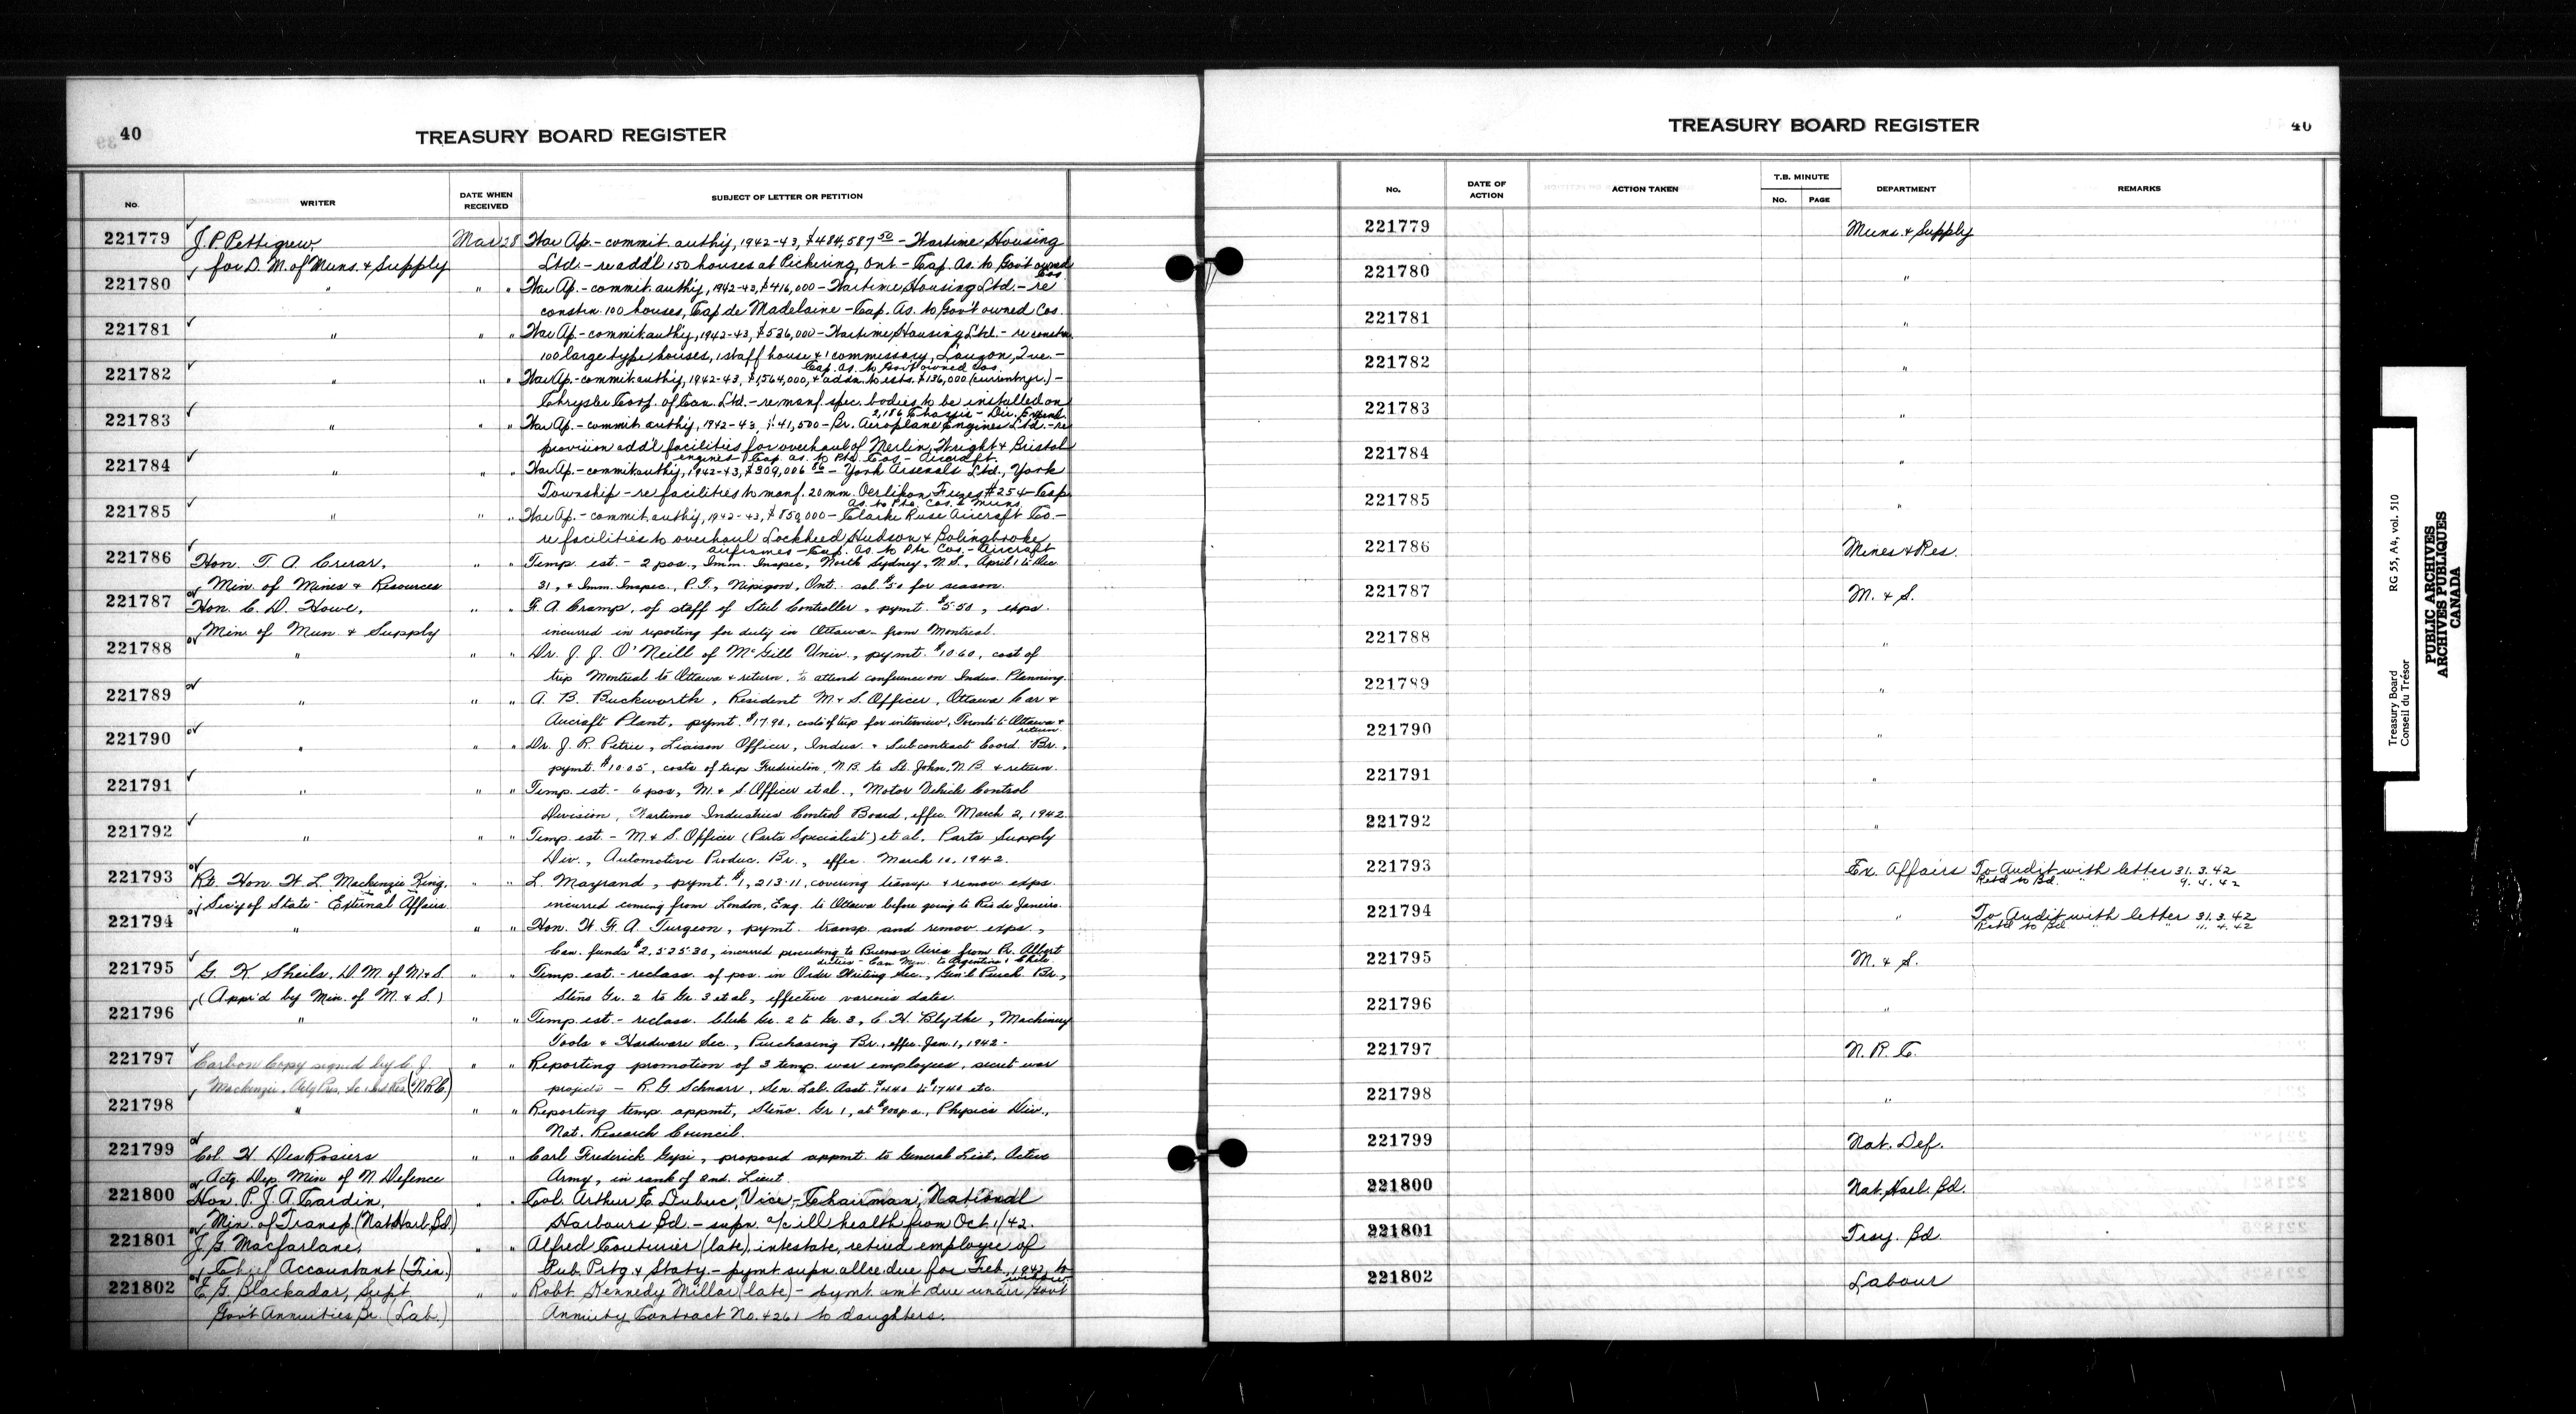 40
TREASURY BOARD REGISTER
No.
WRITER
DATE WHEN RECEIVED
SUBJECT OF LETTER OR PETITION
221779 J. P. Pettigrew, Mar 28 War Ap. - commit. auth'y, 1942-43, $484,587 50 - Wartime Housing
for D. M. of Muns. & Supply Ltd. - re add'l 150 houses at Pickering, Ont - Cap. As. to Gov't owned Cos.
221780 " " " War Ap. - commit. auth'y, 1942-43, $416,000 - Wartime Housing Ltd. - re
constrn. 100 houses, Cap de Madelaine - Cap. As. to Gov't owned Cos.
221781 " " " War Ap. - commit. auth'y, 1942-43, $536,000 - Wartime Housing Ltd. - re constrn
100 large type houses, 1 staff house & 1 commissary, Lauzon, Que. -
Cap. As. to Gov't owned Cos.
221782 " " " War Ap. - commit. auth'y, 1942-43, $1,564,000, & addn. to ests. $136,000 (current yr.) -
Chrysler Corp. of Can. Ltd. - re manf. spec. bodies to be installed on
2,186 Chassis - Dir. Expend.
221783 " " " War Ap. - commit. auth'y, 1942-43, $41,500 - Br. Aeroplane Engines Ltd. - re
provision add'l facilities for overhaul of Merlin, Wright & Bristol
engines - Cap. as. to Pte. Cos. - Aircraft.
221784 " " " War Ap. - commit. auth'y, 1942-43, $309,006 - York Arsenals Ltd., York
Township - re facilities to manf. 20 mm. Oerlikon Fuzes #254 - Cap
As. to Pte. Cos. - Muns.
221785 " " " War Ap. - commit. auth'y, 1942-43, $850,000 - Clarke Ruse Aircraft Co. -
re facilities to overhaul Lockheed Hudson & Bolingbroke
airframes - Cap. As. to Pte Cos. - Aircraft
221786 Hon. T. A. Crerar, " Temp. est. - 2 pos., Imm. Inspec., North Sydney, N.S., April 1 to Dec
Min. of Mines & Resources 31, & Imm. Inspec., P.T., Nipigon, Ont. sal. $50 for season.
221787 Hon. C. D. Howe, " " F. A. Cramp, of staff of Steel Controller, pymt. $5.50, exps.
Min. of Mun. & Supply incurred in reporting for duty in Ottawa from Montreal.
221788 " " " Dr. J. J. O'Neill of McGill Univ., pymt. $10.60, cost of
trip Montreal to Ottawa & return, to attend conference on Indus. Planning.
221789 " " " A. B. Buckworth, Resident M. & S. Officer, Ottawa Car &
Aircraft Plant, pymt. $17.90, costs of trip for interview, Toronto to Ottawa &
return.
221790 " " " Dr. J. R. Petrie, Liaison Officer, Indus. & Subcontract Coord. Br.,
pymt. $10.05, costs of trip Fredericton, N.B. to St. John, N.B. & return.
221791 " " " Temp. est. - 6 pos, M. & S. Officer et al., Motor Vehicle Control
Division, Wartime Industries Control Board, effec. March 2, 1942.
221792 " " " Temp. est. - M. & S. Officer (Parts Specialist) et al. Parts Supply
Div., Automotive Produc. Br., effec. March 10, 1942.
221793 Rt. Hon. W. L. Mackenzie King, " " L. Mayrand, pymt. $1,213.11, covering transp. & remov. exps.
Sec'y of State - External Affairs incurred coming from London, Eng. to Ottawa before going to Rio de Janeiro.
221794 " " " Hon. W. F. A. Turgeon, pymt. transp. and remov. exps.,
Can. funds $2,525.30, incurred proceeding to Buenos Aires from Pr. Albert
duties - Can Min. to Argentina & Chile.
221795 G. K. Sheils, D. M. of M. & S. " " Temp. est. - reclass. of pos. in Order Writing Sec., Gen'l Purch. Br.,
(Appr'd by Min. of M. & S.) Steno Gr. 2 to Gr. 3 et al, effective various dates.
221796 " " " Temp. est. - reclass. Clerk Gr. 2 to Gr. 3, C. H. Blythe, Machinery
Tools & Hardware Sec., Purchasing Br., effec. Jan. 1, 1942.
221797 Carbon Copy signed by C. J. " " Reporting promotion of 3 temp. war employees, secret war
Mackenzie, Actg Pres. Sc. & Ind. Res. (N.R.C.) projects - R. G. Schnarr, Sen. Lab. Asst. $1440 to $1740 etc.
221798 " " " Reporting temp. appmt, Steno. Gr 1, at $900 p.a., Physics Div.,
Nat. Research Council.
221799 Col. H. DesRosiers " " Carl Frederick Gysi, proposed appmt. to General List, Active
Actg. Dep. Min. of N. Defence Army, in rank of 2nd. Lieut.
221800 Hon. P. J. A. Cardin, " " Col. Arthur E. Dubuc, Vice-Chairman, National
Min. of Transp. (Nat. Harb. Bd.) Harbours Bd. - supn. a/c ill health from Oct. 1/42.
221801 J. G. Macfarlane, " " Alfred Couturier (late), intestate, retired employee of
Chief Accountant (Fin.) Pub. Prtg. & Staty. - pymt. supn. allce. due for Feb., 1942, to
widow.
221802 E. G. Blackadar, Supt. " " Robt. Kennedy Millar (late) - pymt. am't due under Gov't
Gov't Annuities Br. (Lab.) Annuity Contract No. 4261 to daughters.
TREASURY BOARD REGISTER
40
No.
DATE OF ACTION
ACTION TAKEN
T.B. MINUTE
No.
PAGE
DEPARTMENT
REMARKS
221779 Muns. & Supply
221780 "
221781 "
221782 "
221783 "
221784 "
221785 "
221786 Mines & Res.
221787 M. & S.
221788 "
221789 "
221790 "
221791 "
221792 "
221793 Ex. Affairs To Audit with letter 31.3.42
Retd to Bd. " " 9.4.42
221794 " To Audit with letter 31.3.42
Retd to Bd. " " 11.4.42
221795 M. & S.
221796 "
221797 N. R. C.
221798 "
221799 Nat. Def.
221800 Nat. Harb. Bd.
221801 Trsy. Bd.
221802 Labour
Treasury Board RG 55, A4, vol. 510
Conseil du Trésor
PUBLIC ARCHIVES
ARCHIVES PUBLIQUES
CANADA